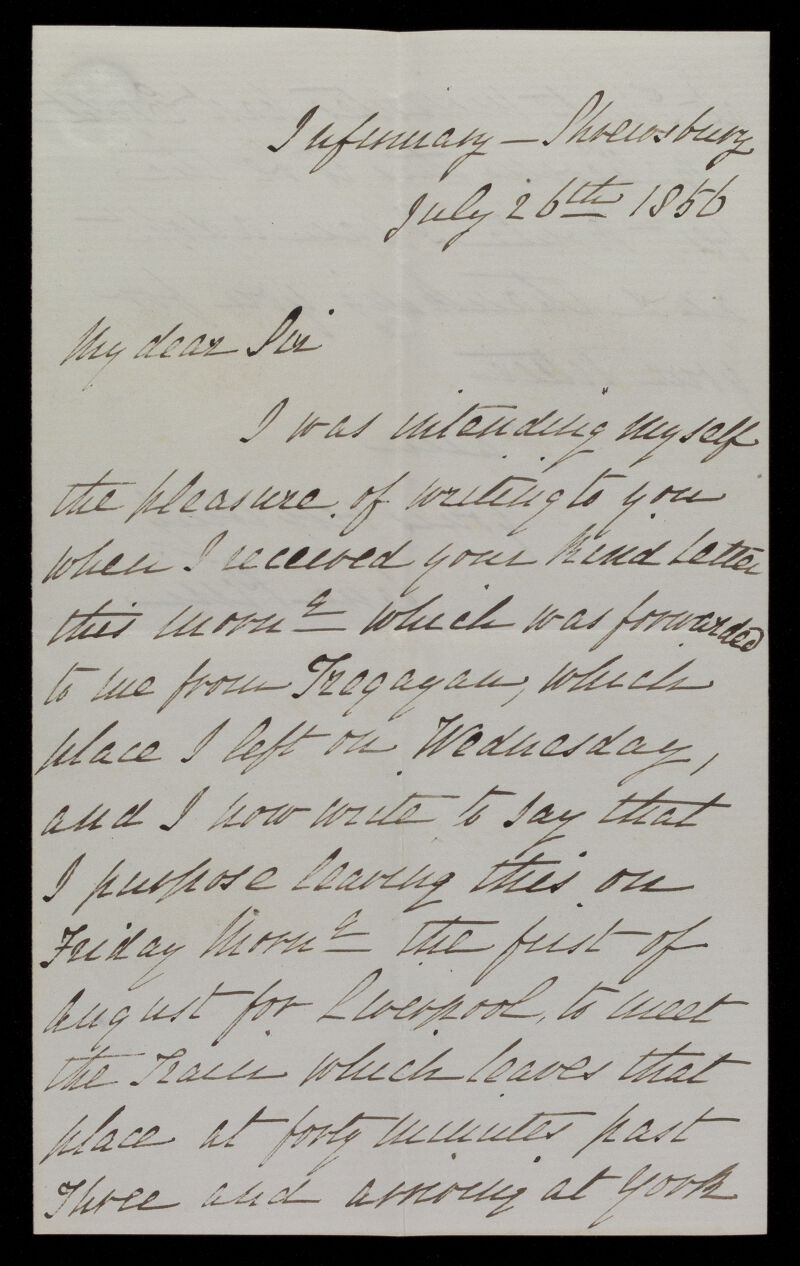 Infirmary — Shrewsbury
July 26th 1856
My dear Sir
I was intending myself
the pleasure of writing to you
when I received your kind letter
this morng which was forwarded
to me from Tregayan, which
place I left on Wednesday,
and I now write to say that
I purpose leaving this on
Friday Morng the first of
August for Liverpool, to meet
the Train which leaves that
place at forty minutes past
Three and arriving at York